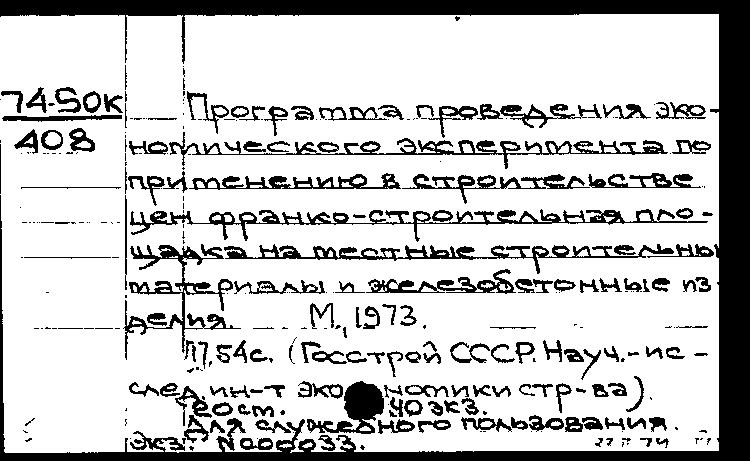 74-50к
408
Программа проведения эко-
номического эксперимента по
применению в строительстве
цен франко-строительная пло-
щадка на местные строительны
материалы и железобетонные из
делия. М., 1973.
54с. (Госстрой СССР. Науч.-ис-
след. ин-т экономики стр-ва).
20 ст. 40 экз.
Для служебного пользования.
Экз. N000033.